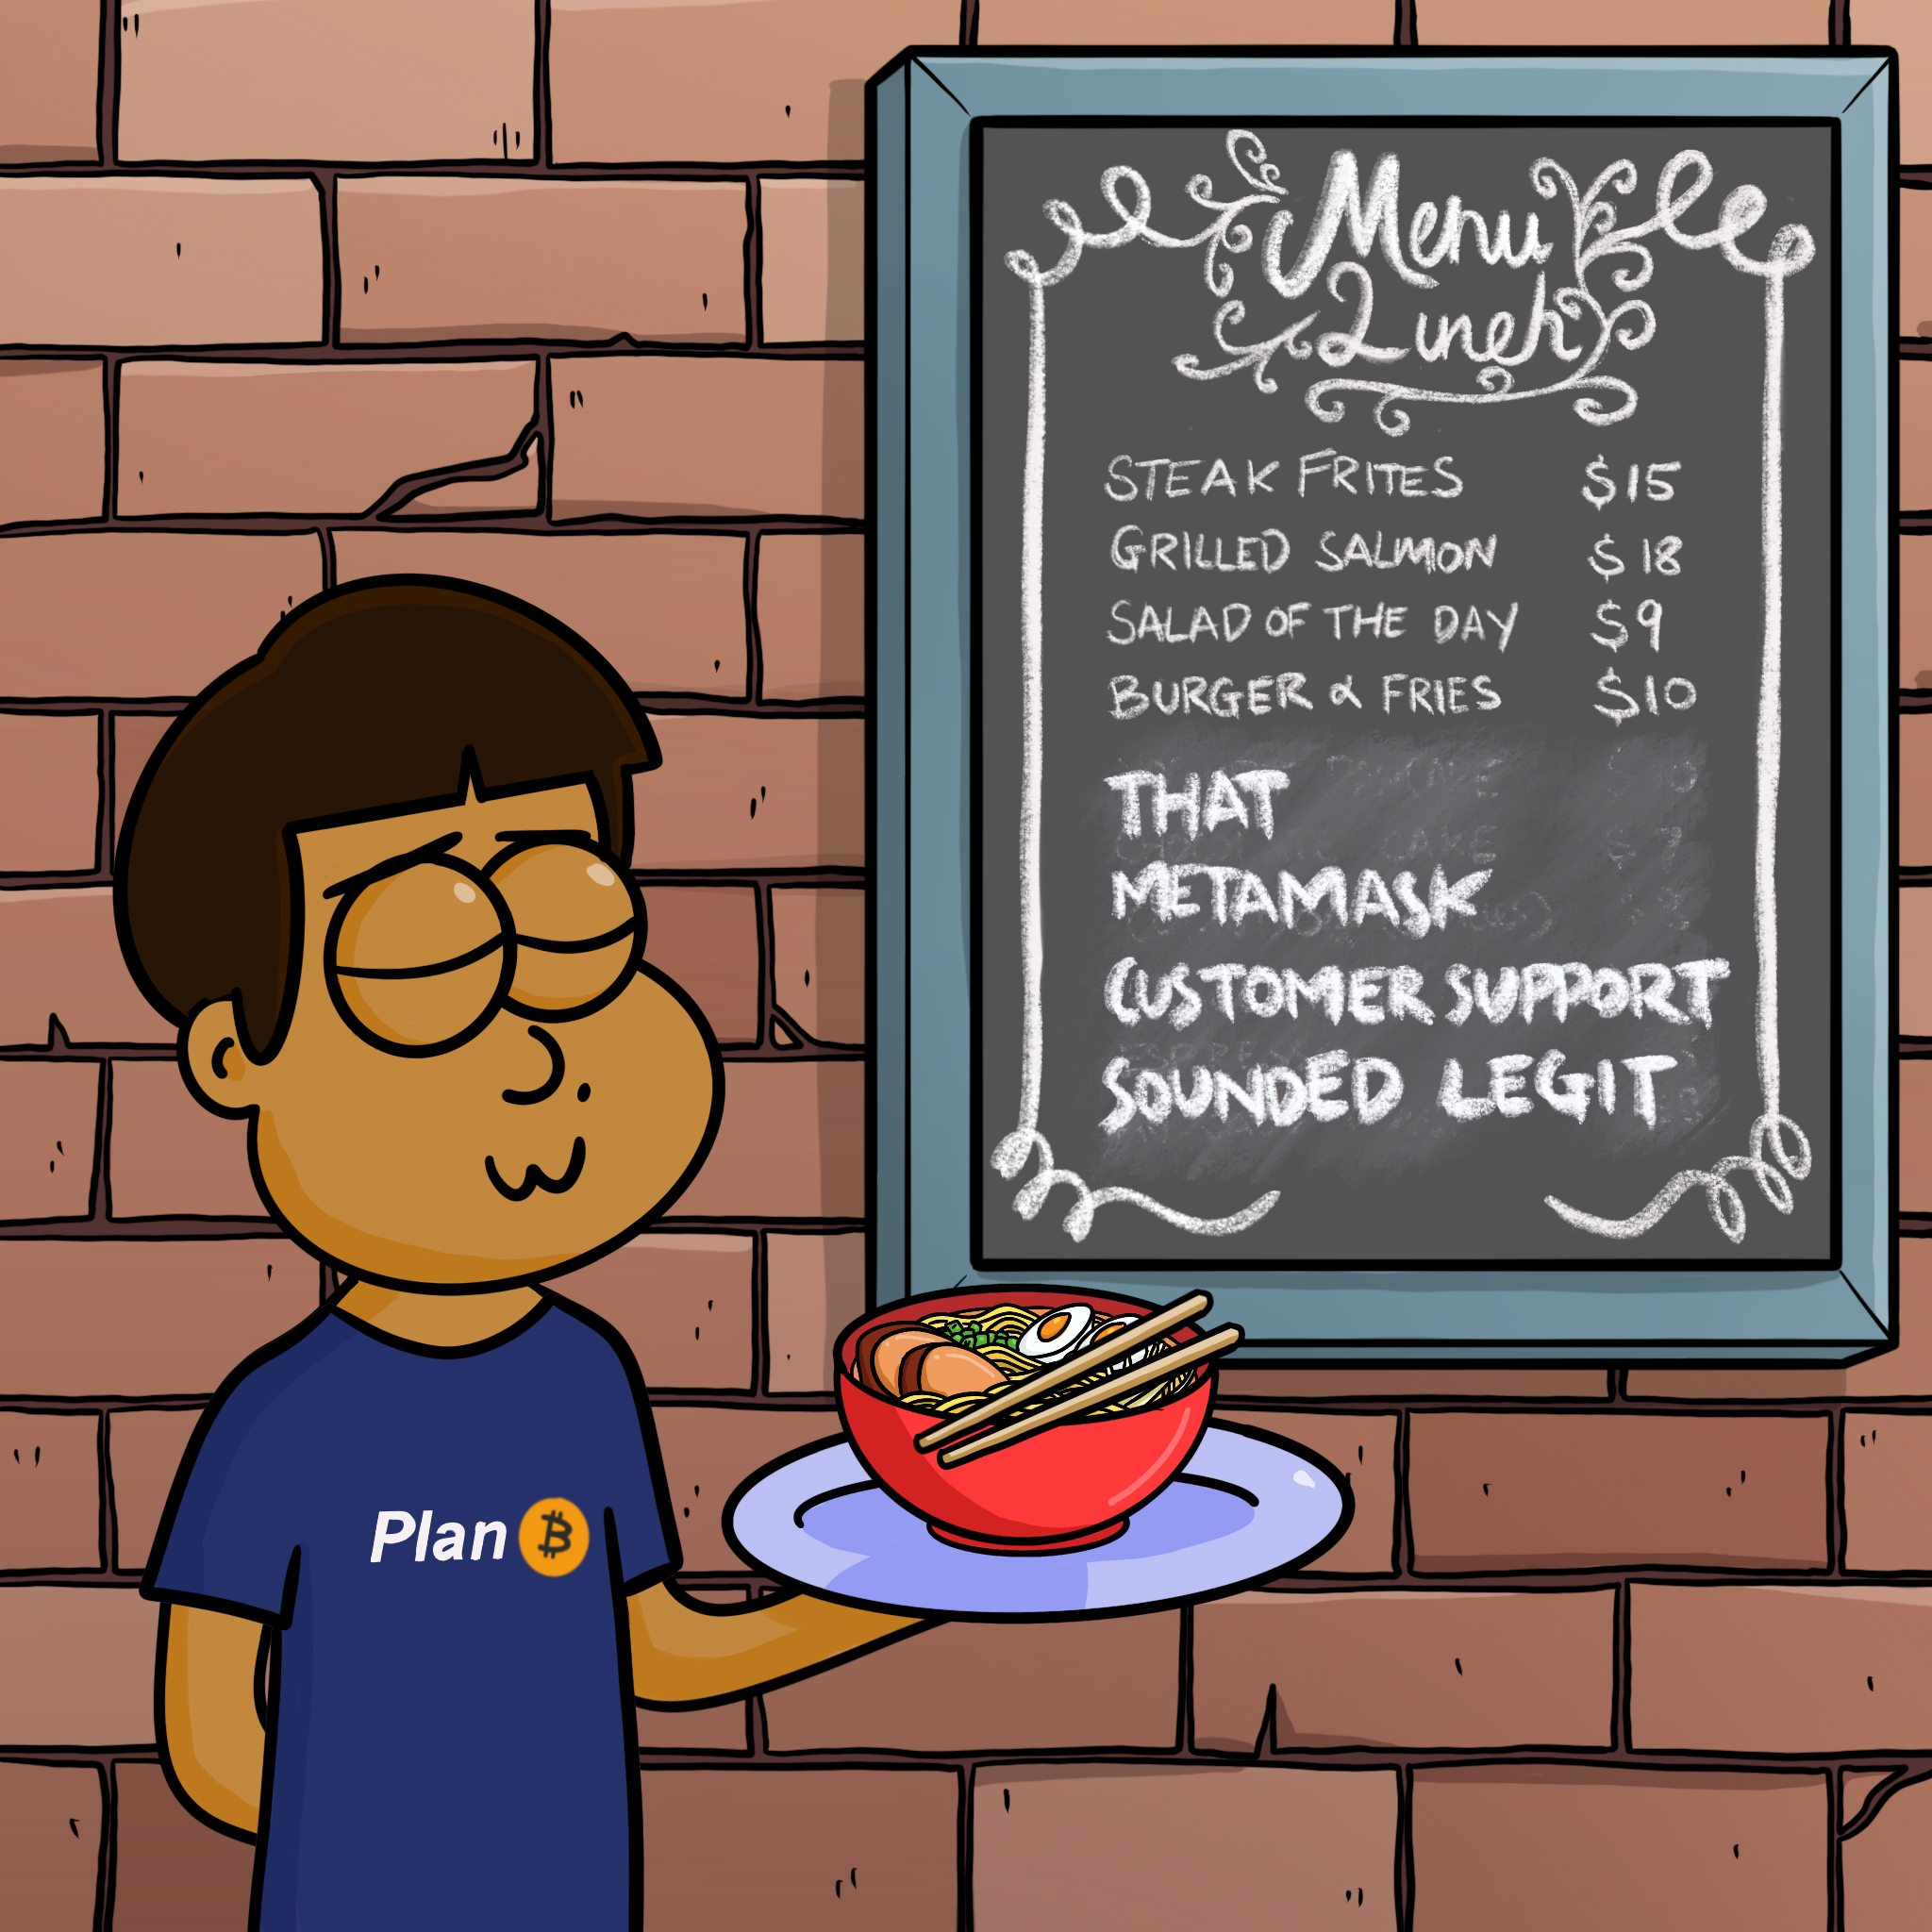 Menu
Lunch
STEAK FRITES $15
GRILLED SALMON $18
SALAD OF THE DAY $9
BURGER & FRIES $10
THAT
METAMASK
CUSTOMER SUPPORT
SOUNDED LEGIT
Plan ₿